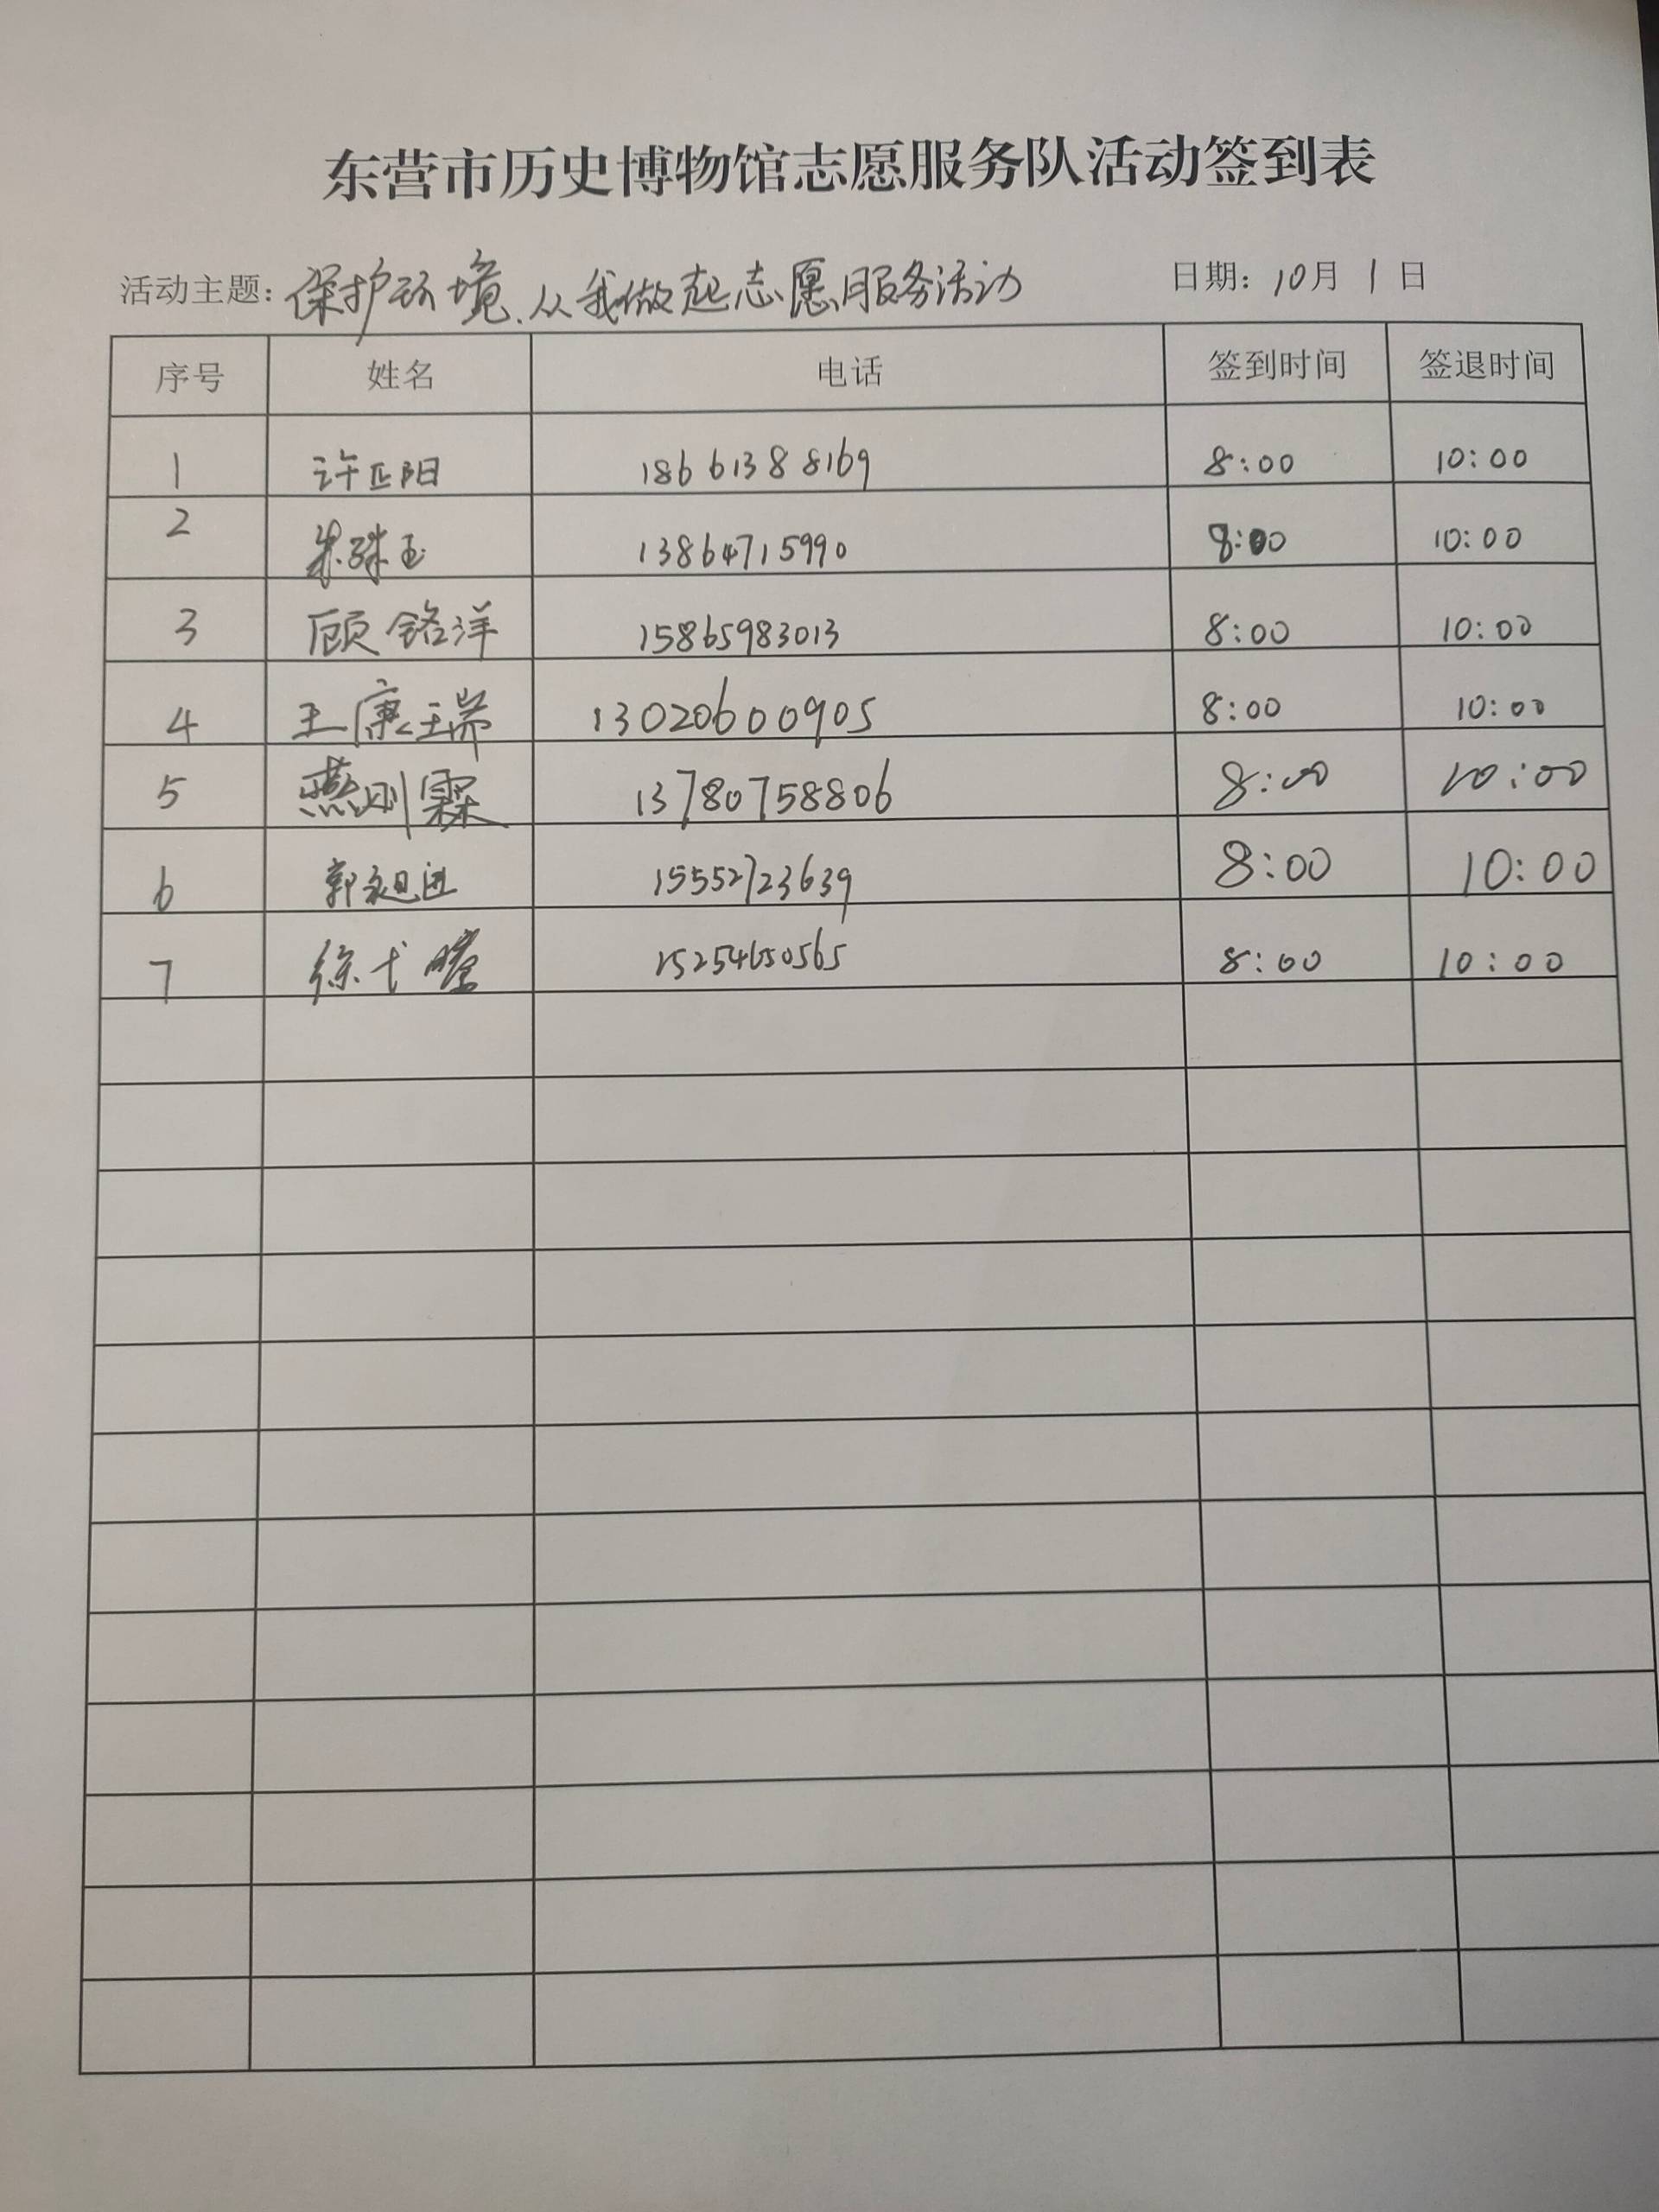 东营市历史博物馆志愿服务队活动签到表
活动主题：保护环境、从我做起志愿服务活动 日期：10月1日
序号 姓名 电话 签到时间 签退时间
1 许正阳 18661388169 8:00 10:00
2 朱珠玉 13864715990 8:00 10:00
3 顾铭洋 15865983013 8:00 10:00
4 王康瑞 13020600905 8:00 10:00
5 燕刚霖 13780758806 8:00 10:00
6 郭 15552723639 8:00 10:00
7 徐 15254650565 8:00 10:00